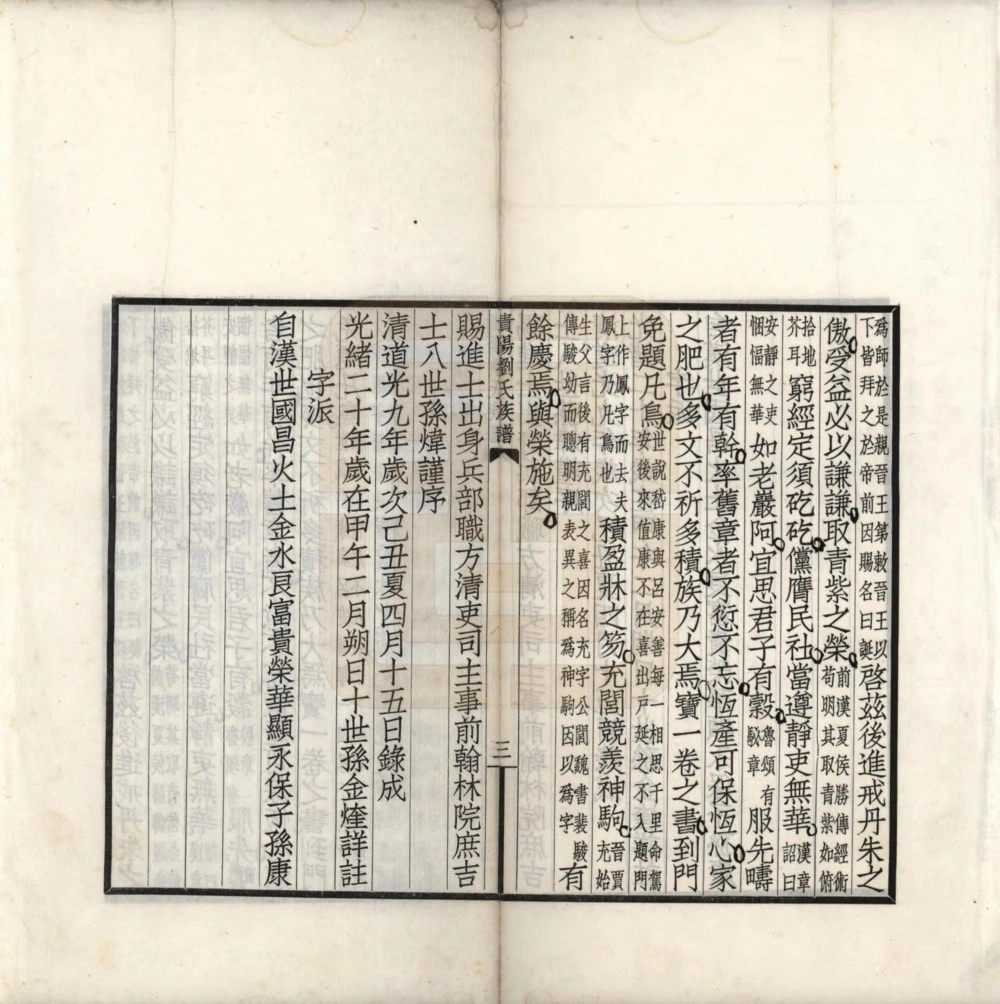 為師於是親晉王第敕晉王以下皆拜之於帝前因賜名曰誕啓茲後進戒丹朱之
傲受益必以謙謙取青紫之榮前漢夏侯勝傳經術苟明其取青紫如俯
拾地芥耳窮經定須矻矻儻膺民社當遵靜吏無華漢章詔曰
安靜之吏悃愊無華如老嚴阿宜思君子有穀魯頌有駜章服先疇
者有年有幹率舊章者不愆不忘恆產可保恆心家
之肥也多文不祈多積族乃大焉寶一卷之書到門
免題凡鳥世說嵇康與呂安善每一相思千里命駕安後來值康不在喜出戶延之不入題門
上作鳳字而去夫鳳字乃凡鳥也積盈牀之笏充閭競羨神駒晉賈充始
生父言後有充閭之喜因名充字公閭魏書裴駿傳駿幼而聰明親表異之稱為神駒因以為字有
餘慶焉與榮施矣
貴陽劉氏族譜 三
賜進士出身兵部職方清吏司主事前翰林院庶吉
士八世孫煒謹序
清道光九年歲次己丑夏四月十五日錄成
光緒二十年歲在甲午二月朔日十世孫金煃詳註
字派
自漢世國昌火土金水良富貴榮華顯永保子孫康